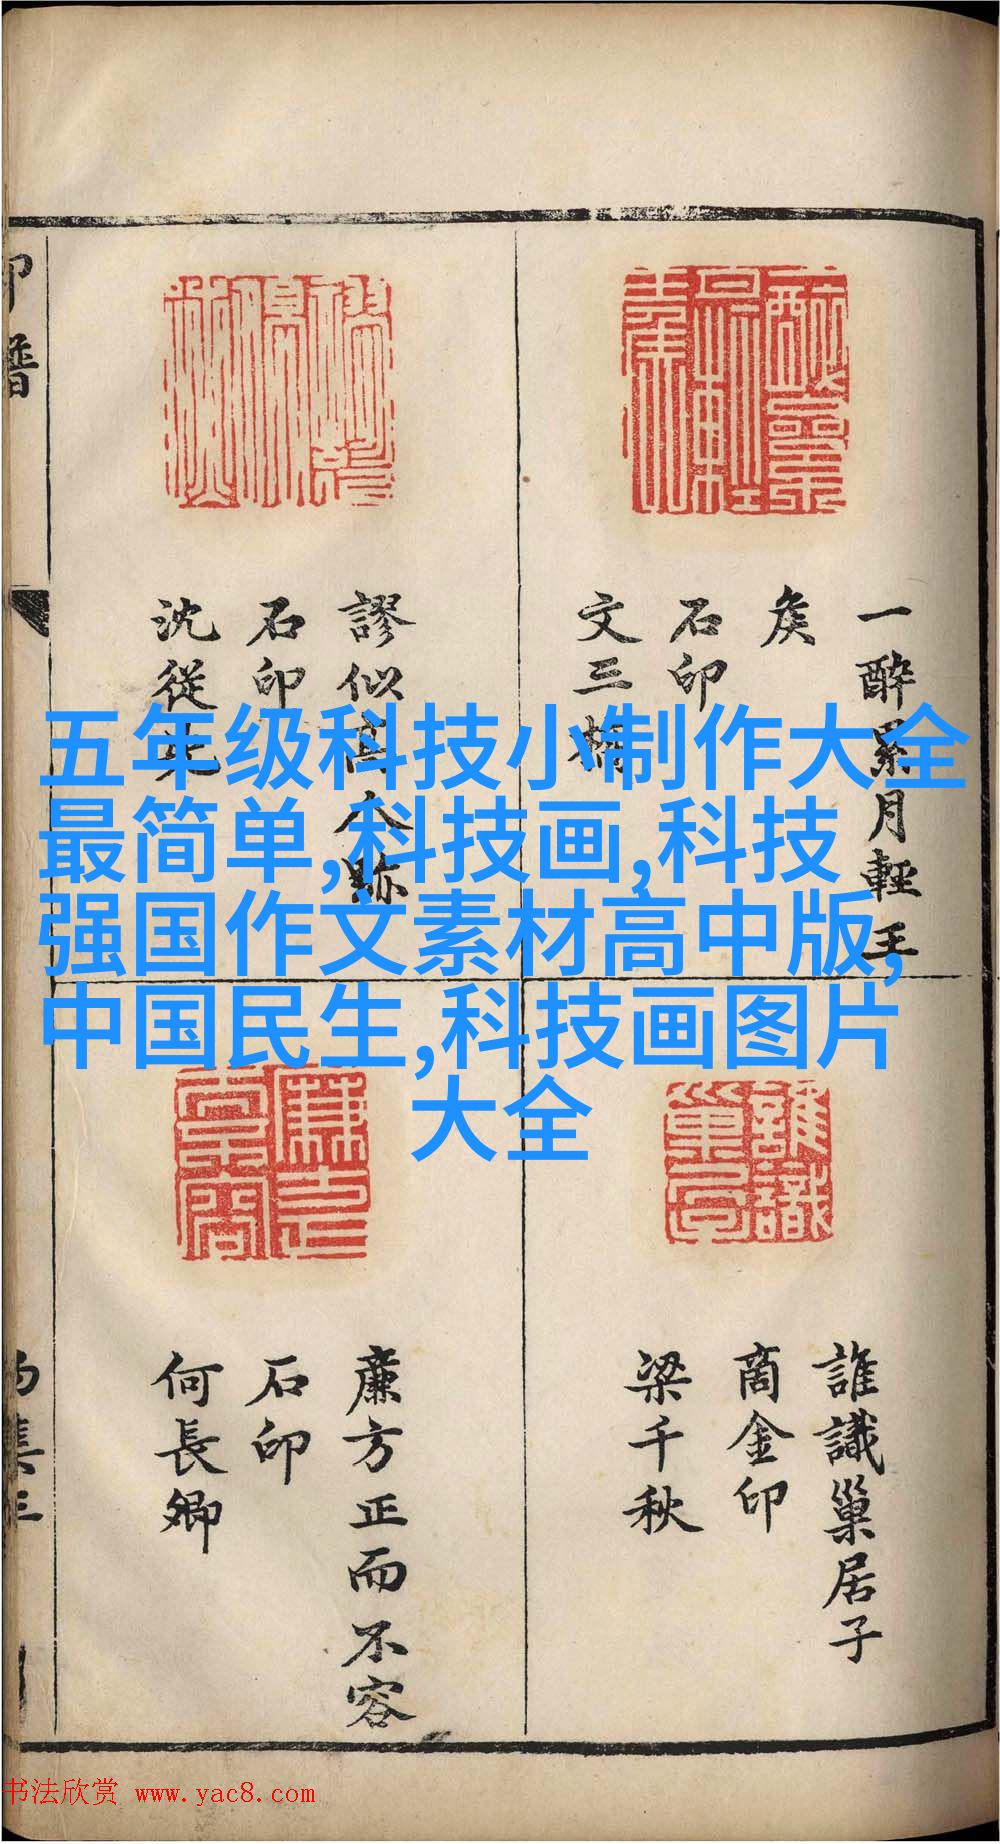 五年级科技小制作大全
最简单,科技画,科技
强国作文素材高中版,
中国民生,科技画图片
大全
印譜
一醉累月輕王
矦
石印
文三橋
謬似高人跡
石印
沈從先
誰識巢居子
商金印
梁千秋
廉方正而不容
石印
何長卿
书法欣赏 www.yac8.com